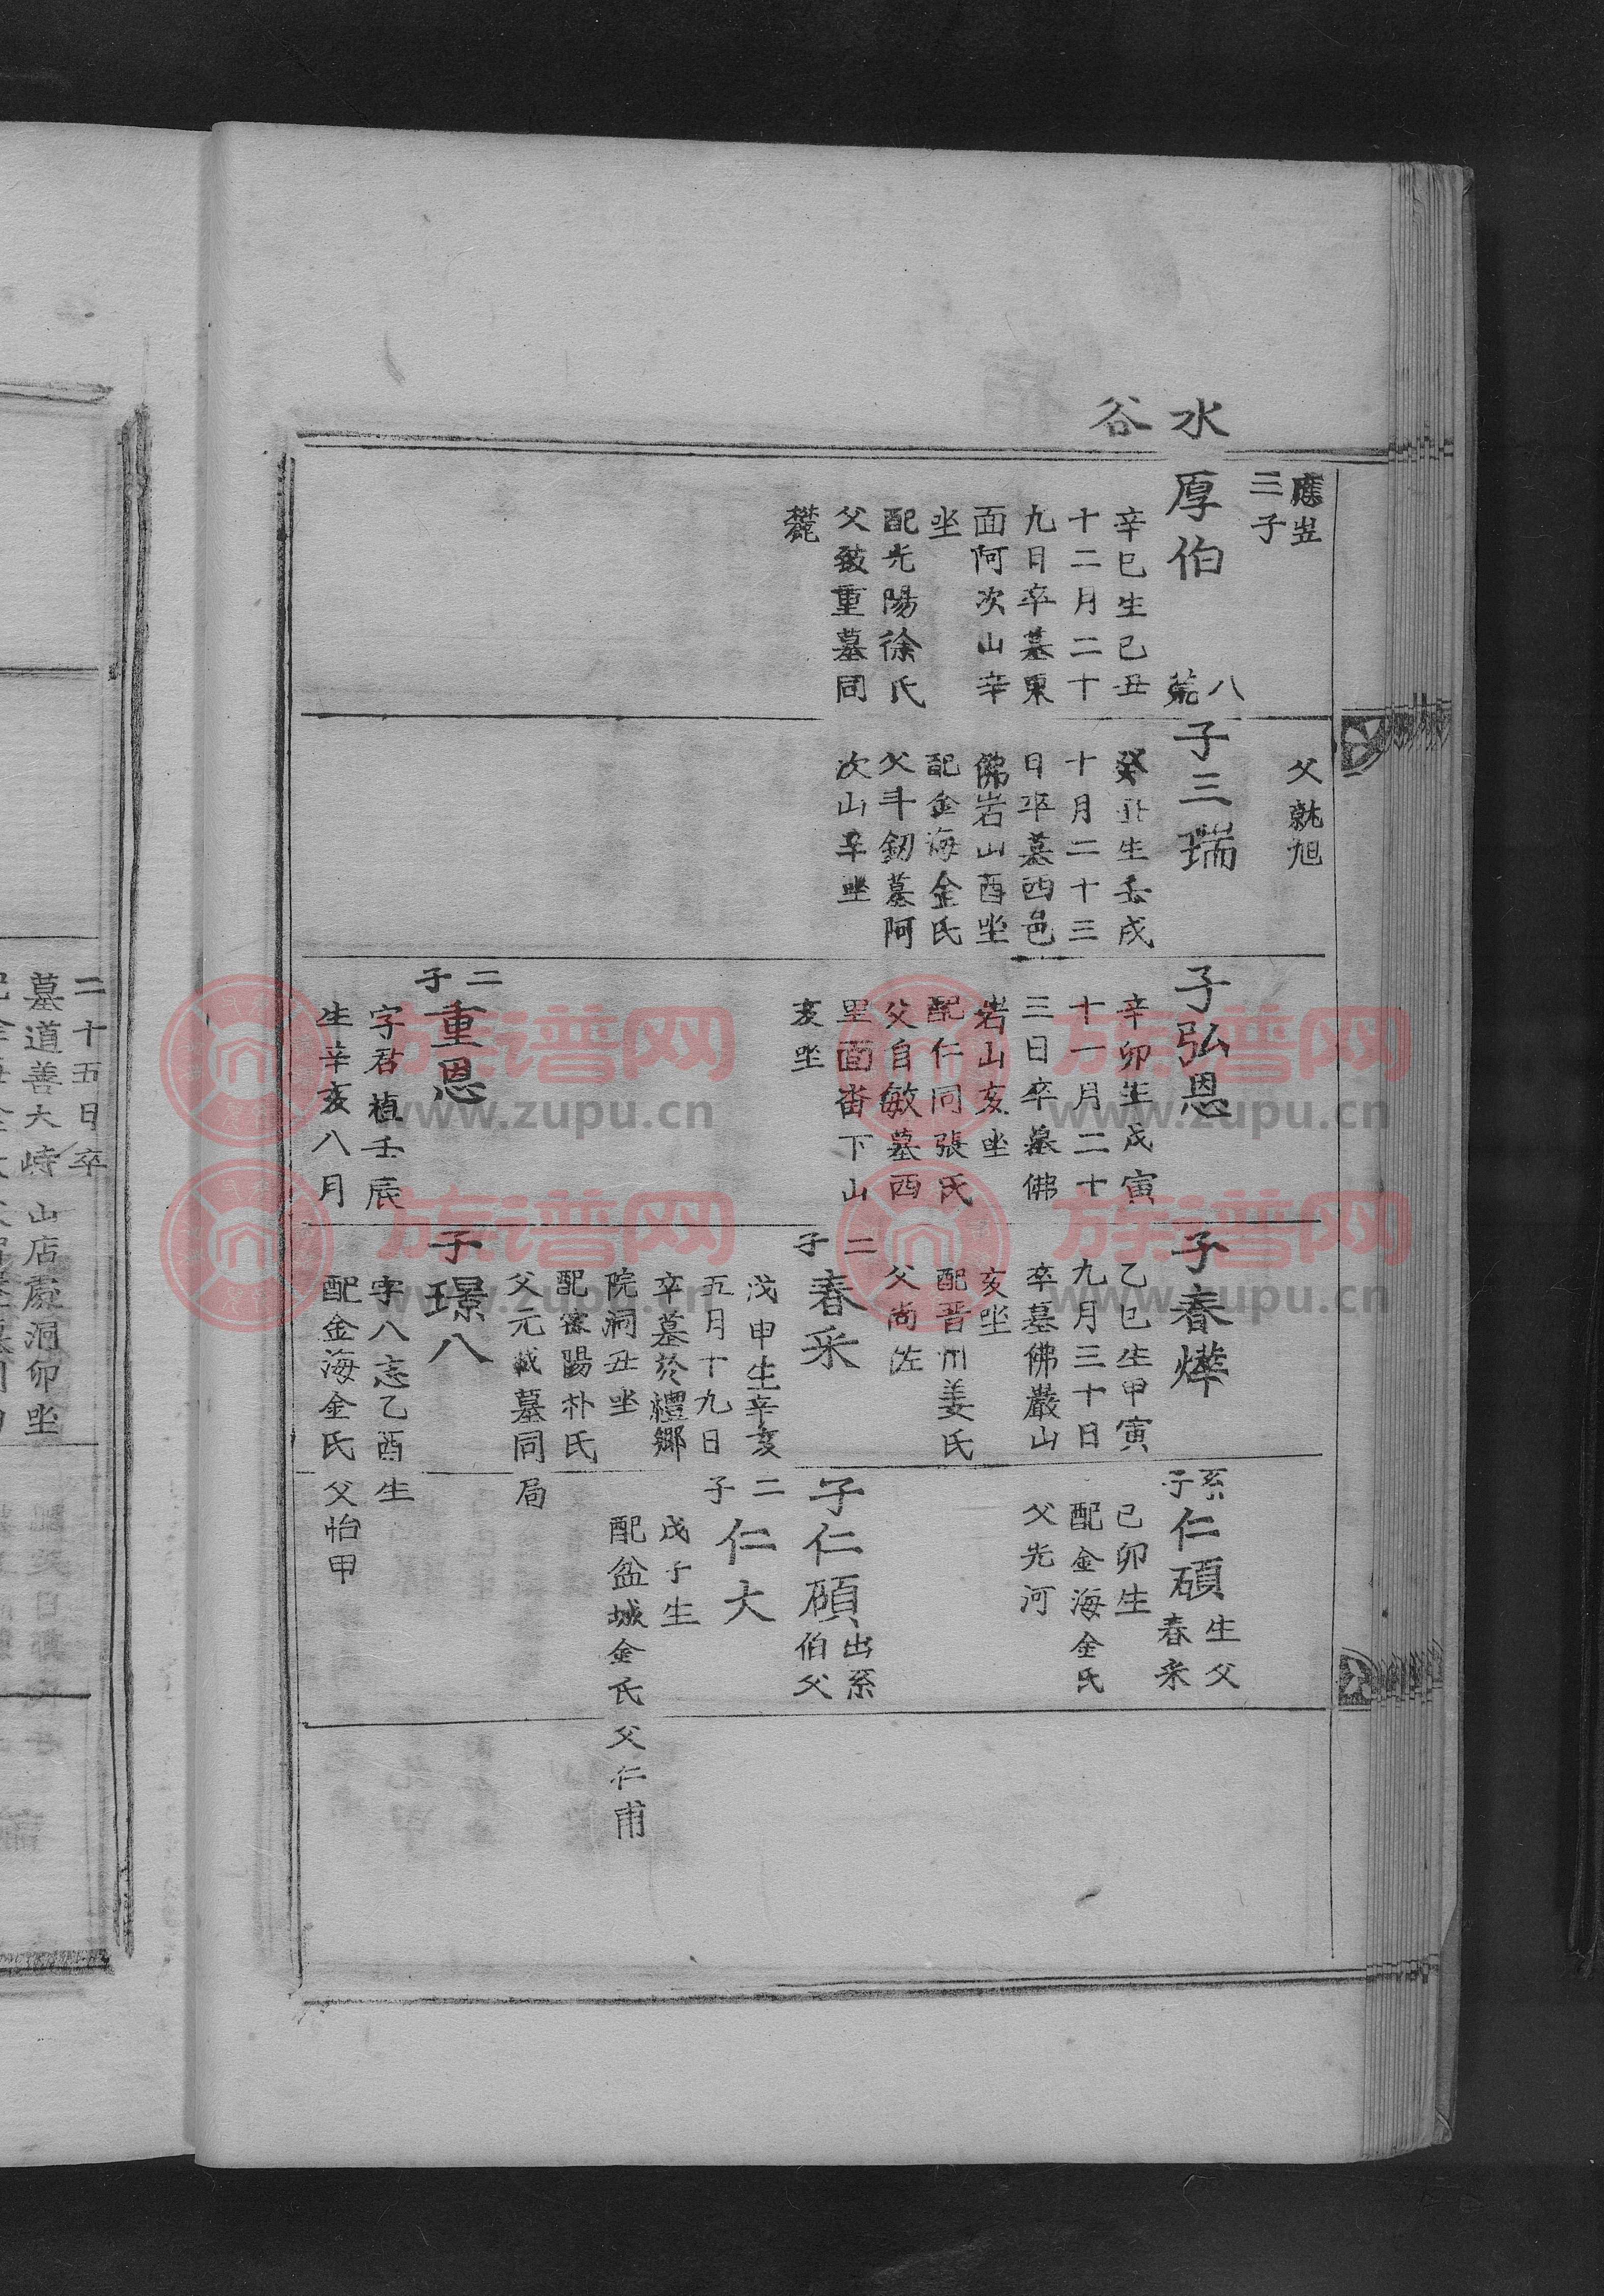 水
谷
應岦
三子
厚伯
八
荒
辛巳生己丑
十二月二十
九日卒墓東
面阿次山辛
坐
配光陽徐氏
父致重墓同
麓
父就旭
子三瑞
癸丑生壬戌
十月二十三
日卒墓四邑
佛岩山酉坐
配金海金氏
父斗釰墓阿
次山辛坐
子弘恩
辛卯生戊寅
十一月二十
三日卒墓佛
岩山亥坐
配仁同張氏
父自敏墓西
里面畓下山
亥坐
二
子
重恩
字君植壬辰
生辛亥八月
子春燁
乙巳生甲寅
九月三十日
卒墓佛巖山
亥坐
配晋州姜氏
父尚佐
二
子
春采
戊申生辛亥
五月十九日
卒墓於禮鄉
院洞丑坐
配密陽朴氏
父元載墓同
局
子璟八
字八志乙酉生
配金海金氏父怡甲
系
子
仁碩
生父
春采
己卯生
配金海金氏
父光河
子仁碩
出系
伯父
二
子
仁大
戊子生
配盆城金氏父仁甫
二十五日卒
墓道善大峙山店處洞卯坐
族谱网
www.zupu.cn
族谱网
www.zupu.cn
族谱网
www.zupu.cn
族谱网
www.zupu.cn